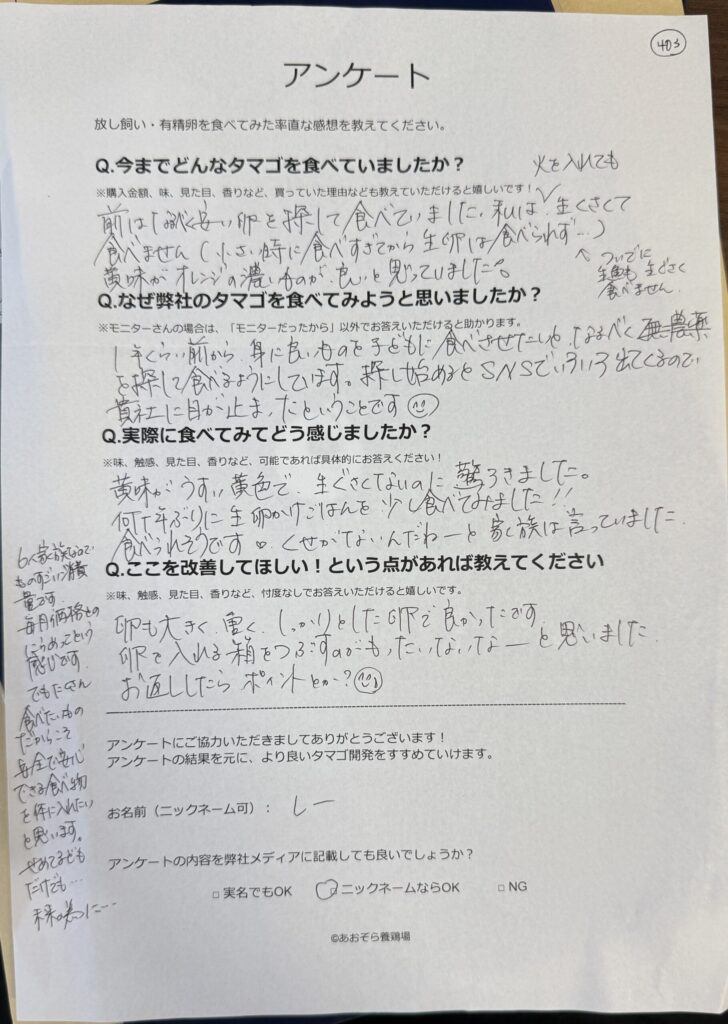 403
アンケート
放し飼い・有精卵を食べてみた率直な感想を教えてください。
Q.今までどんなタマゴを食べていましたか？
火を入れても
※購入金額、味、見た目、香りなど、買っていた理由なども教えていただけると嬉しいです！
前はなるべく安い卵を探して食べていました。私は、生ぐさくて
食べません（小さい時に食べすぎてから生卵は食べられず…）
黄味がオレンジの濃いものが、良いと思っていました。
↖ ついでに
生魚も生ぐさく
食べません。
Q.なぜ弊社のタマゴを食べてみようと思いましたか？
※モニターさんの場合は、「モニターだったから」以外でお答えいただけると助かります。
1年くらい前から、身に良いものを子どもに食べさせたいや、なるべく無農薬
を探して食べるようにしています。探し始めるとSNSでいろいろ出てくるので
貴社に目が止まったということです
Q.実際に食べてみてどう感じましたか？
※味、触感、見た目、香りなど、可能であれば具体的にお答えください！
黄味がうすい黄色で、生ぐさくないのに驚ろきました。
何十年ぶりに生卵かけごはんを少し食べてみました!!
食べられそうです♡ くせがないんだねーと家族は言っていました。
Q.ここを改善してほしい！という点があれば教えてください
※味、触感、見た目、香りなど、忖度なしでお答えいただけると嬉しいです。
卵も大きく、重く、しっかりとした卵で良かったです
卵を入れる箱をつぶすのがもったいないなーと思いました。
お返ししたらポイントとか？
6人家族なので
ものすごい消費
量です。
毎月価格との
にらめっこという
感じです。
でもたくさん
食べたいもの
だからこそ
安全で安心
できる食べ物
を体に入れたい
と思います。
せめて子ども
だけでも…
未来の為に…
アンケートにご協力いただきましてありがとうございます！
アンケートの結果を元に、より良いタマゴ開発をすすめていけます。
お名前（ニックネーム可）： しー
アンケートの内容を弊社メディアに記載しても良いでしょうか？
□ 実名でもOK □ ニックネームならOK □ NG
©あおぞら養鶏場